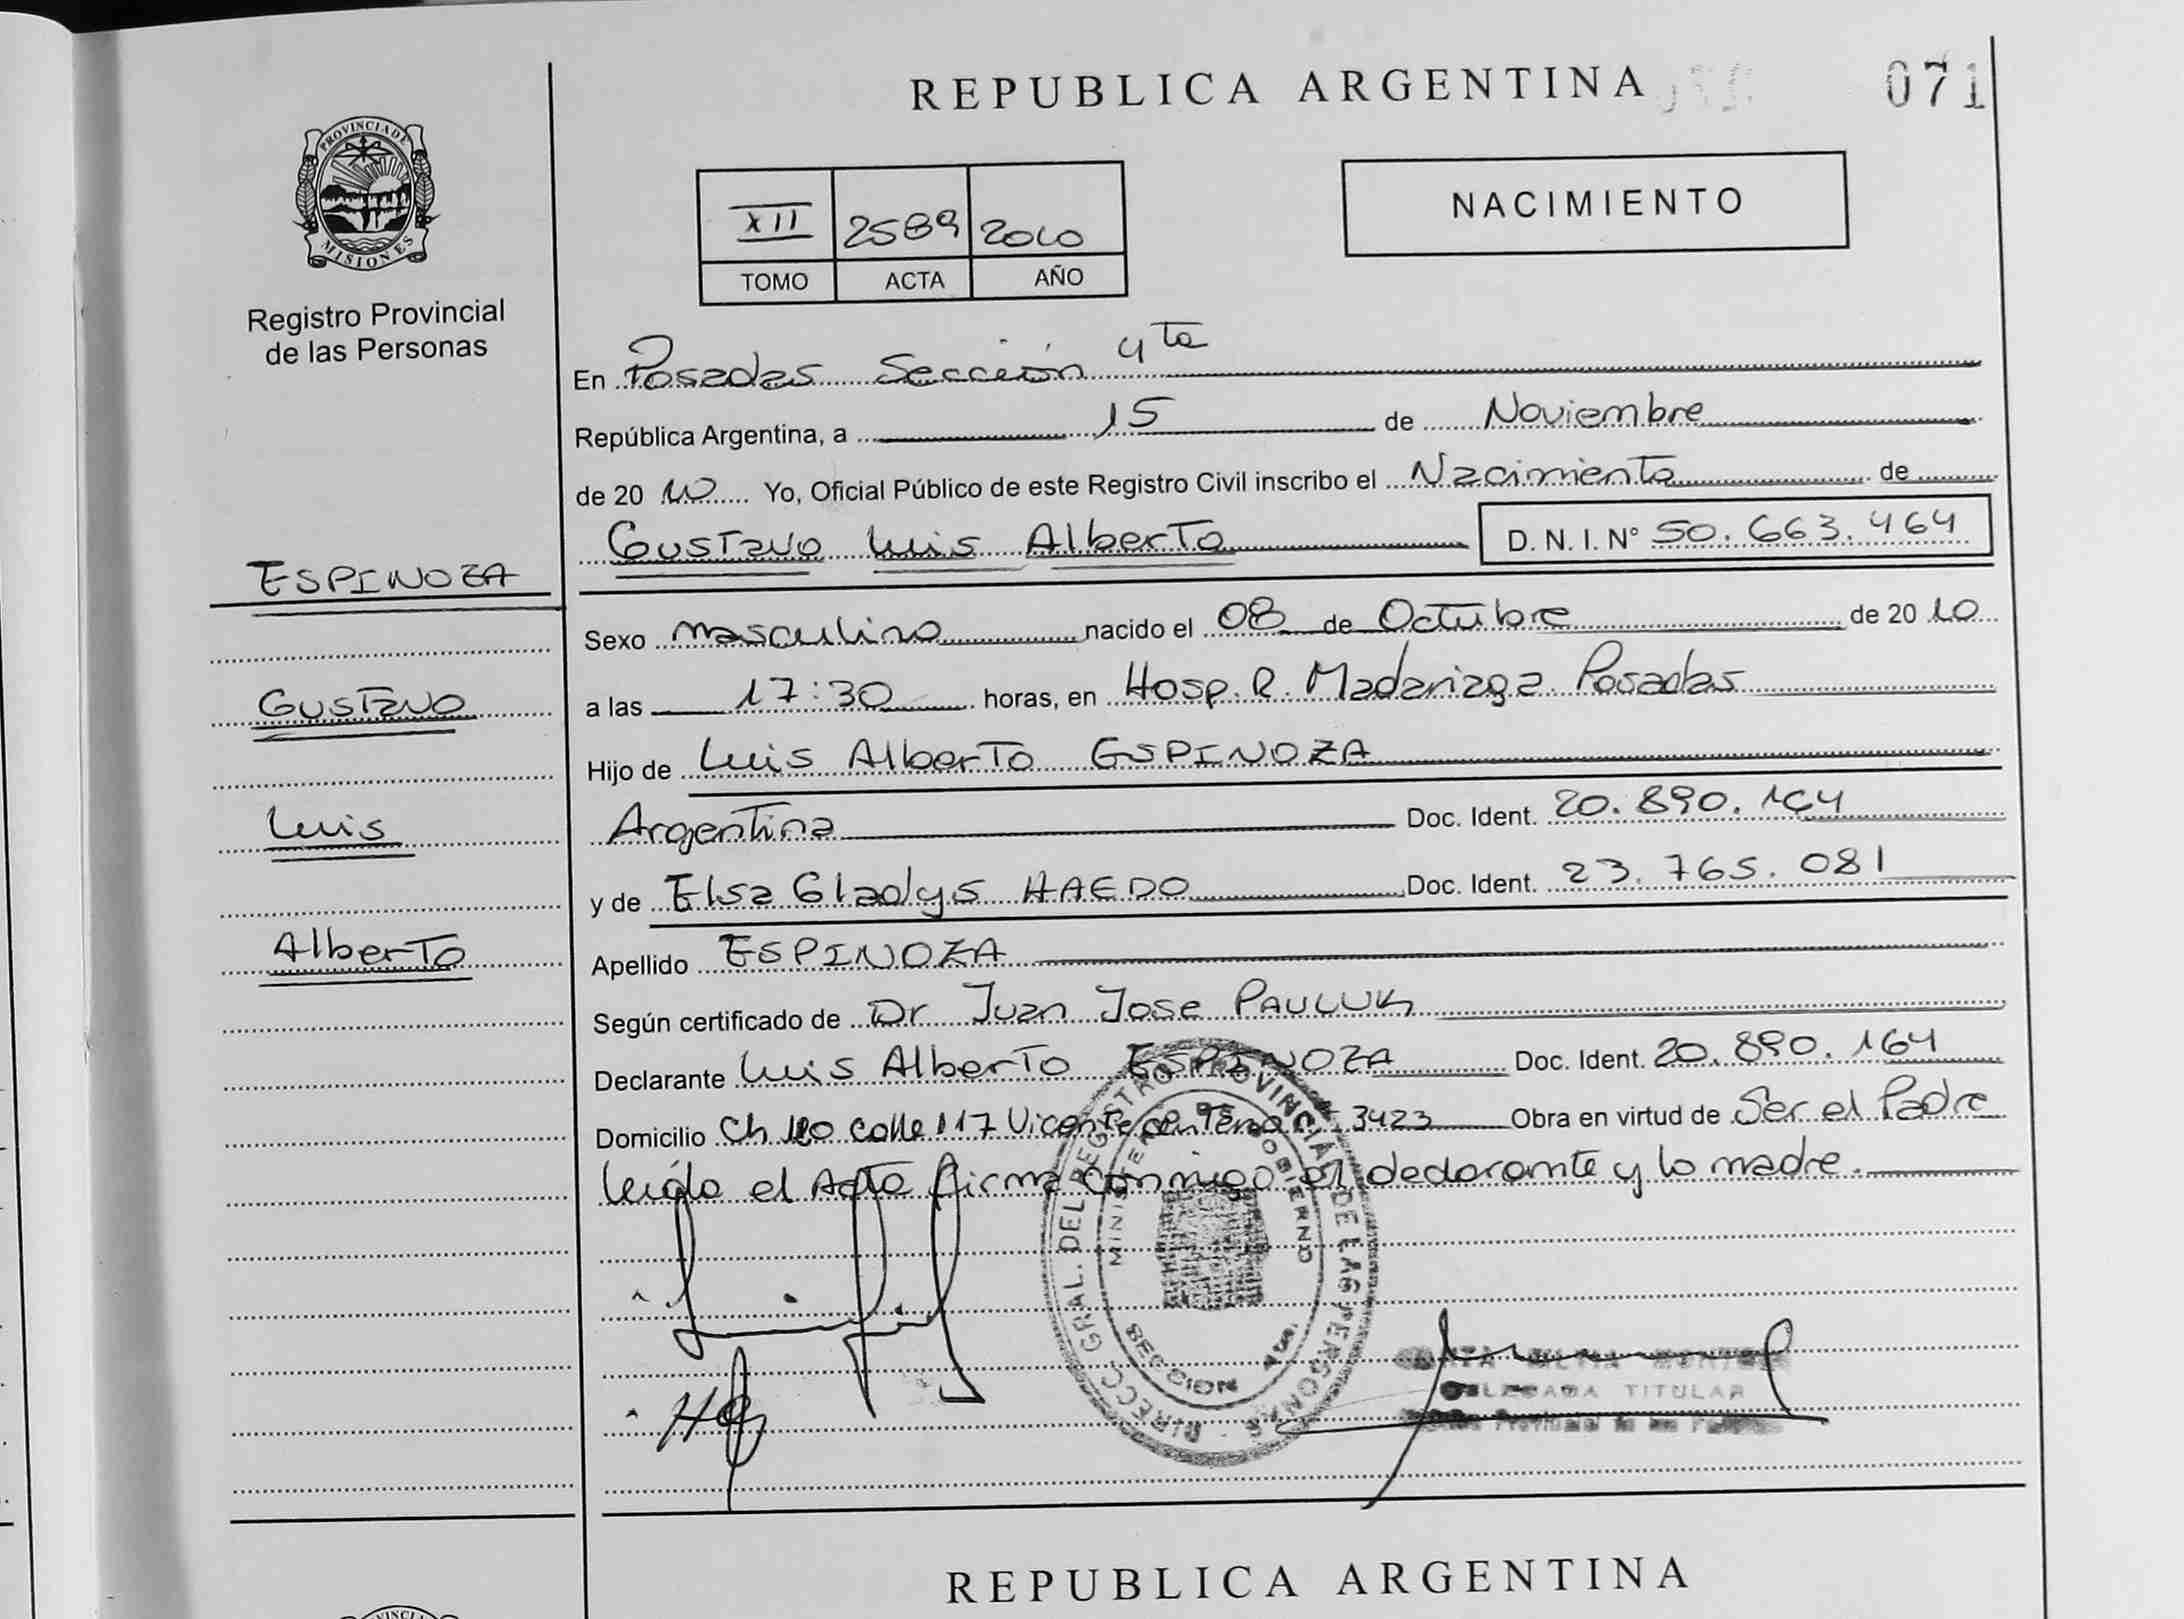 REPUBLICA ARGENTINA
071
PROVINCIA DE
MISIONES
Registro Provincial
de las Personas
XII 2589 2010
TOMO ACTA AÑO
NACIMIENTO
En Posadas Sección 4ta
República Argentina, a 15 de Noviembre
de 20 10 Yo, Oficial Público de este Registro Civil inscribo el Nacimiento de
Gustavo Luis Alberto D. N. I. Nº 50.663.464
ESPINOZA
Sexo masculino nacido el 08 de Octubre de 20 10
Gustavo
a las 17:30 horas, en Hosp. R. Madariaga Posadas
Hijo de Luis Alberto ESPINOZA
Luis
Argentina Doc. Ident. 20.890.164
y de Elsa Gladys HAEDO Doc. Ident. 23.765.081
Alberto
Apellido ESPINOZA
Según certificado de Dr Juan Jose PAULUK
Declarante Luis Alberto ESPINOZA Doc. Ident. 20.890.164
Domicilio Ch 120 calle 117 Vicente 3423 Obra en virtud de Ser el Padre
leída el Acta firma conmigo el declarante y la madre.
DIRECC. GRAL. DEL REGISTRO PROVINCIAL DE LAS PERSONAS
MINISTERIO DE GOBIERNO
SECCION 4ta.
DELEGADA TITULAR
Provincial de las
REPUBLICA ARGENTINA